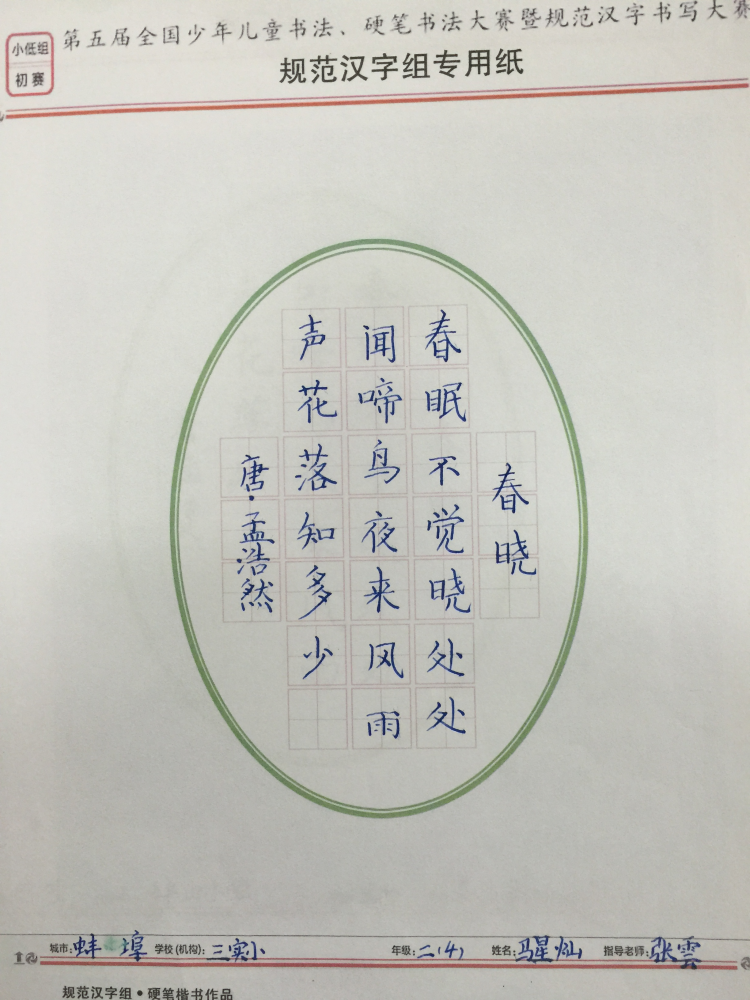 第五届全国少年儿童书法、硬笔书法大赛暨规范汉字书写大赛
小低组
初赛
规范汉字组专用纸
春晓
春眠不觉晓处处
闻啼鸟夜来风雨
声花落知多少
唐·孟浩然
城市:蚌埠 学校(机构):三实小 年级:二(4) 姓名:马星灿 指导老师:张雲
规范汉字组·硬笔楷书作品